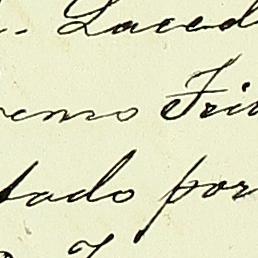 . Laced
enso Fri
tado por